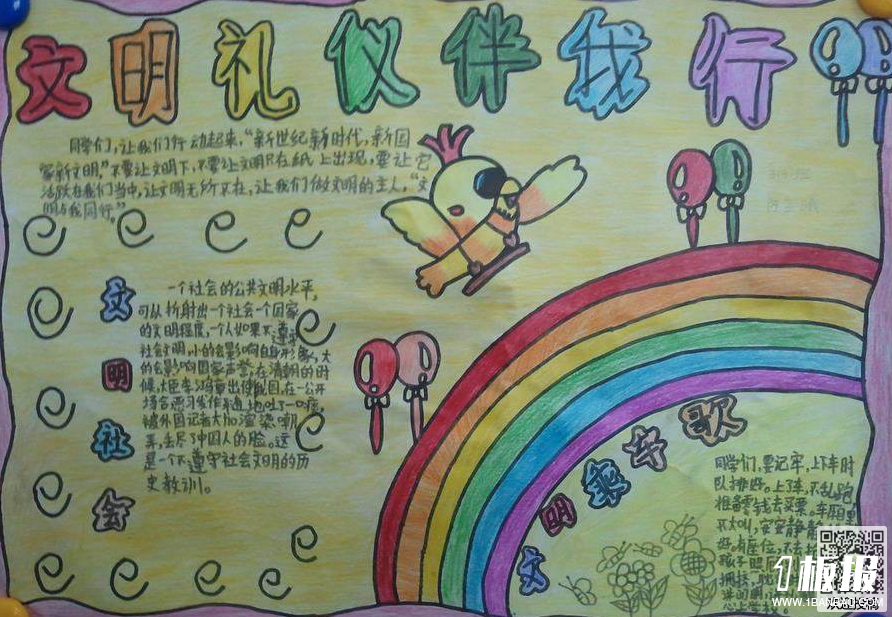 文明礼仪伴我行
同学们，让我们行动起来，“新世纪新时代，新国
家新文明。”不要让文明下，不要让文明只在纸上出现，要让它
活跃在我们当中，让文明无所不在，让我们做文明的主人，“文
明与我同行。”
文明社会
一个社会的公共文明水平，
可以折射出一个社会一个国家
的文明程度，一个人如果不遵守
社会文明，小的会影响自身形象，大
的会影响国家声誉，在清朝的时
候，大臣李鸿章出使俄国，在一公开
场合恶习发作，随地吐了一口痰，
被外国记者大加渲染、嘲
弄，丢尽了中国人的脸。这
是一个不遵守社会文明的历
史教训。
文明乘车歌
同学们，要记牢，上下车时
队排好。上了车，不乱跑，
准备零钱去买票。车厢里
不大叫，安安静静
孩子照
拥挤，
1板报
WWW.1BANBAO.COM
欢迎投稿